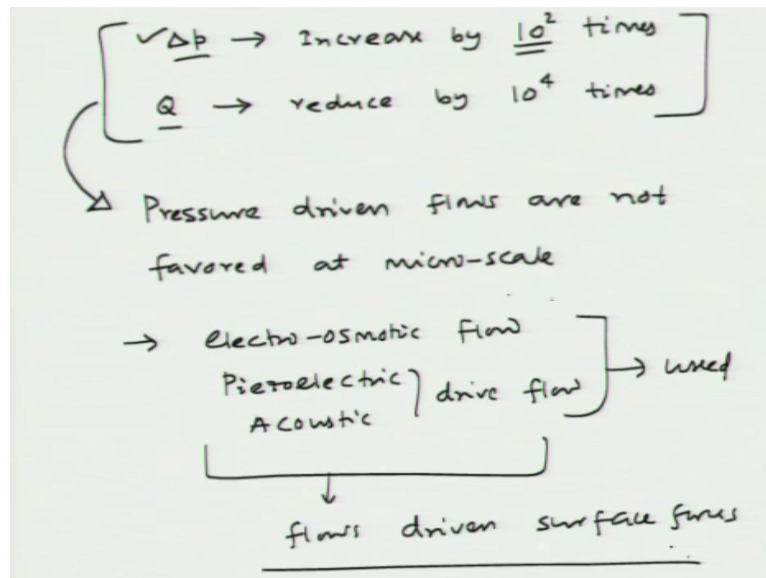 ✓Δp → Increase by 10² times
Q → reduce by 10⁴ times
Pressure driven flows are not
favored at micro-scale
→ electro-osmotic flow
Piezoelectric } drive flow → used
Acoustic
flows driven surface forces